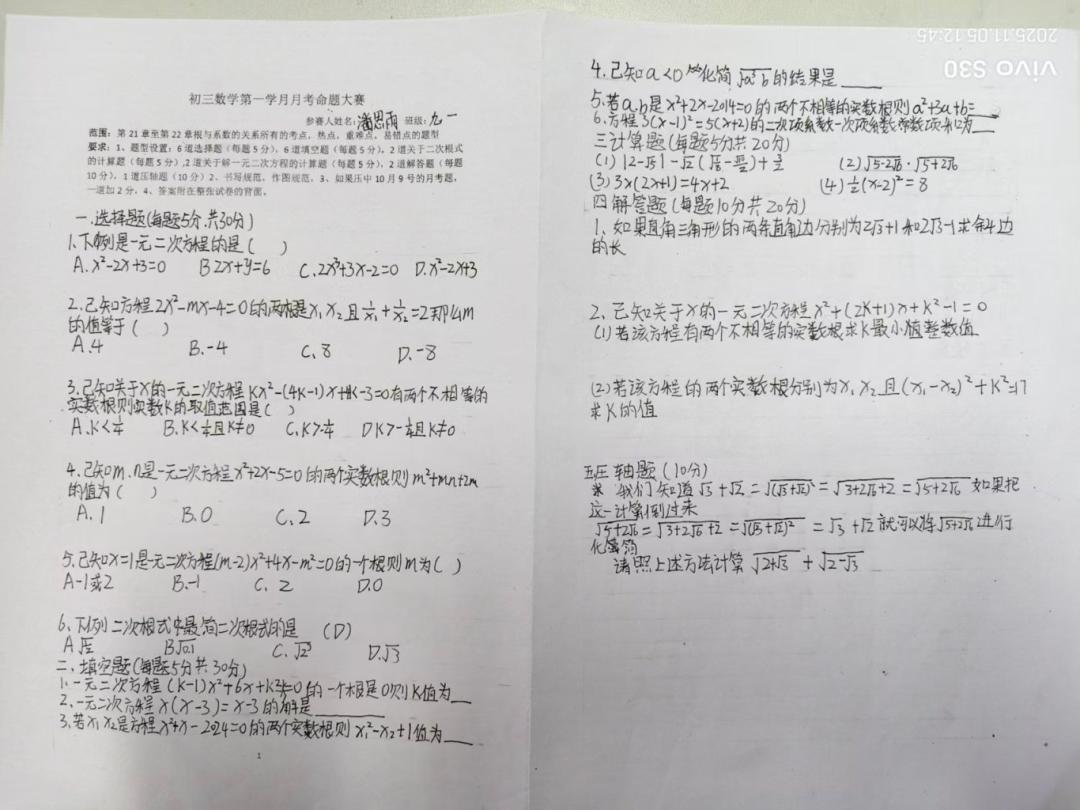 初三数学第一学月月考命题大赛
参赛人姓名:潘思雨 班级:九一
范围:第21章至第22章根与系数的关系所有的考点,热点,重难点,易错点的题型
要求:1、题型设置:6道选择题(每题5分),6道填空题(每题5分),2道关于二次根式
的计算题(每题5分),2道关于解一元二次方程的计算题(每题5分),2道解答题(每题
10分),1道压轴题(10分)2、书写规范,作图规范,3、如果压中10月9号的月考题,
一道加2分,4、答案附在整张试卷的背面。
一.选择题(每题5分.共30分)
1.下例是一元二次方程的是( )
A.x²-2x+3=0 B 2x+y=6 C.2x³+3x-2=0 D.x²-2x+3
2.己知方程2x²-mx-4=0的两根是x₁ x₂且1/x₁+1/x₂=2那么m
的值等于( )
A.4 B.-4 C.8 D.-8
3.己知关于x的一元二次方程Kx²-(4K-1)x+4K-3=0有两个不相等的
实数根则实数K的取值范围是( )
A.K<1/4 B.K<1/4且K≠0 C.K>-1/4 D K>-1/4且K≠0
4.己知m.n是一元二次方程x²+2x-5=0的两个实数根则m²+mn+2m
的值为( )
A.1 B.0 C.2 D.3
5.己知x=1是一元二次方程(m-2)x²+4x-m²=0的一个根则m为( )
A-1或2 B.-1 C.2 D.0
6.下例二次根式中最简二次根式的是 (D)
A B√0.1 C. D.√3
二、填空题(每题5分共30分)
1.一元二次方程(K-1)x²+6x+K²-1=0的一个根是0则K值为__
2.一元二次方程x(x-3)=x-3的解是____
3.若x₁x₂是方程x²+x-2024=0的两个实数根则x₁²-x₂+1值为__
1
4.己知a<0 化简√a³b的结果是____
5.若a.b是x²+2x-2014=0的两个不相等的实数根则a²+3a+b=__
6.方程3(x-1)²=5(x+2)的二次项系数一次项系数常数项和为__
三计算题(每题5分共20分)
(1)|2-√5|-√2(√8-)+ (2)√5-2√6·√5+2√6
(3)3x(2x+1)=4x+2 (4)½(x-2)²=8
四解答题(每题10分共20分)
1、如果直角三角形的两条直角边分别为2√3+1和2√3-1求斜边
的长
2、己知关于x的一元二次方程x²+(2K+1)x+K²-1=0
(1)若该方程有两个不相等的实数根求K最小值整数值
(2)若该方程的两个实数根分别为x₁ x₂且(x₁-x₂)²+K²=17
求K的值
五压轴题(10分)
我们知道√3+√2=√(√3+√2)²=√3+2√6+2=√5+2√6 如果把
这一计算倒过来
√5+2√6=√3+2√6+2=√(√3+√2)²=√3+√2就可以将√5+2√6进行
化简
请照上述方法计算√2+√3+√2-√3
2025.11.05 12:45
vivo S30